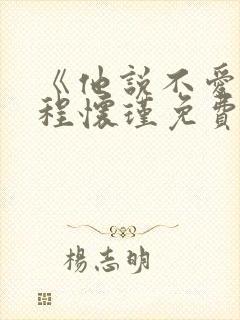 《他說不愛
程懷瑾免費
楊志明